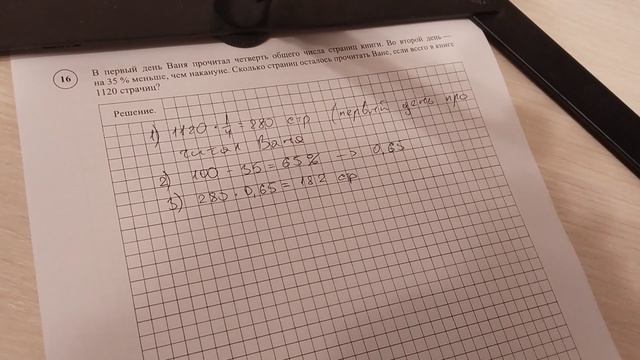 16
В первый день Ваня прочитал четверть общего числа страниц книги. Во второй день —
на 35 % меньше, чем накануне. Сколько страниц осталось прочитать Ване, если всего в книге
1120 страниц?
Решение.
1) 1120 · 1/4 = 280 стр (первый день про
читал Ваня
2) 100 - 35 = 65% -> 0,65
3) 280 · 0,65 = 182 ср